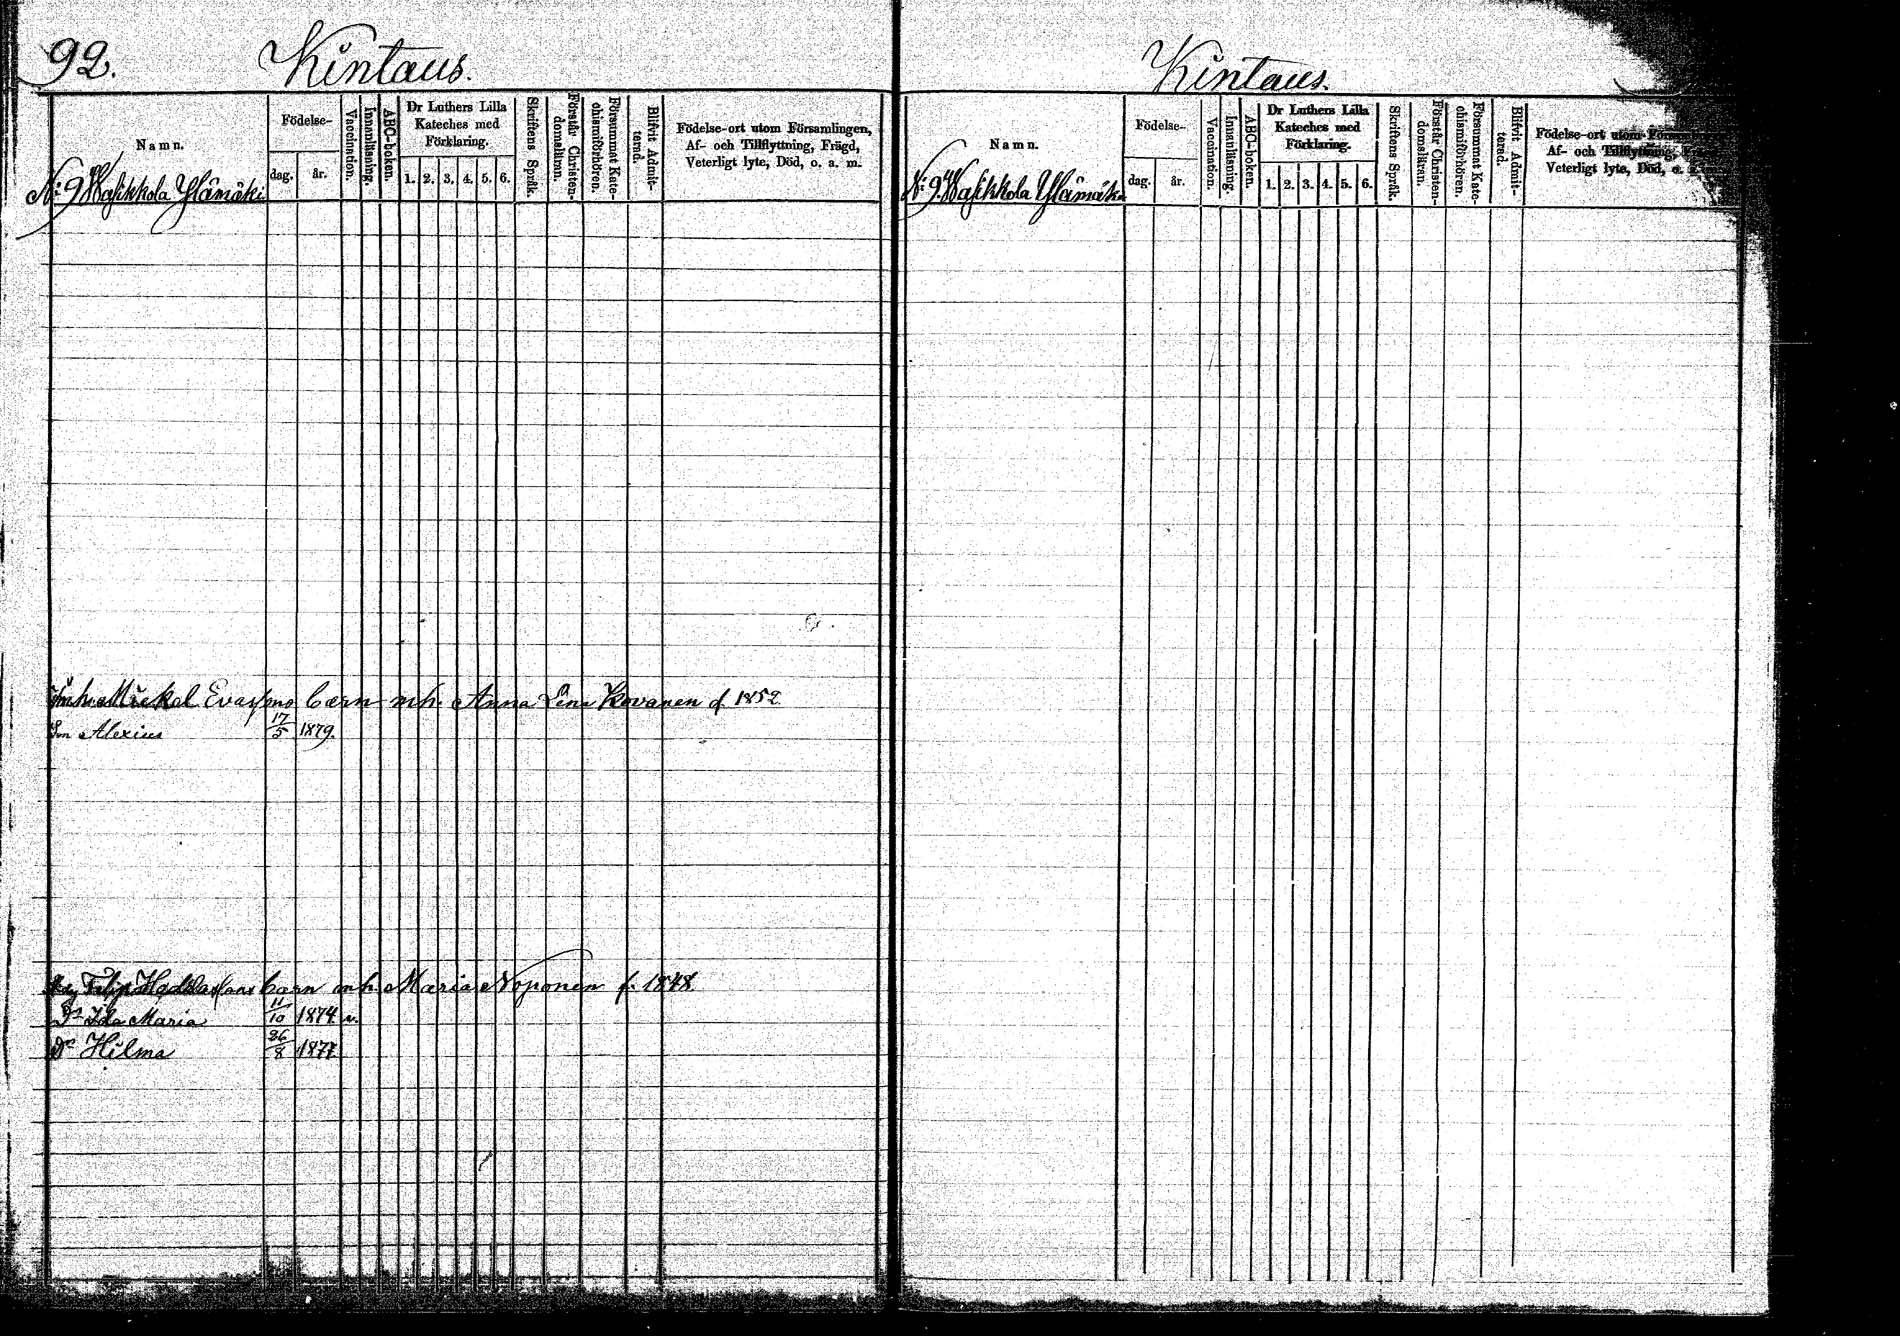 92.
Kintaus.
Namn.
Födelse-
dag.
år.
Vaccination.
Innanläsning.
ABC-boken.
Dr Luthers Lilla
Kateches med
Förklaring.
1. 2. 3. 4. 5. 6.
Skriftens Språk.
Förstår Christen-
domslärnn.
Försummat Kate-
chismiförhören.
Blifvit Admit-
terad.
Födelse-ort utom Församlingen,
Af- och Tillflyttning, Frägd,
Veterligt lyte, Död, o. a. m.
N:o 9 Wasikkola Ylämäki
Mickel Evas/ons barn mh. Anna Lena Kovanen f. 1852
Sn Alexius 17/5 1879.
Filip barn mh. Maria Noponen f. 1848
Dr Ida Maria 11/10 1874 v.
Dr Hilma 26/8 1877
Kintaus.
Namn.
Födelse-
dag.
år.
Vaccination.
Innanläsning.
ABC-boken.
Dr Luthers Lilla
Kateches med
Förklaring.
1. 2. 3. 4. 5. 6.
Skriftens Språk.
Förstår Christen-
domsläran.
Försummat Kate-
chismiförhören.
Blifvit Admit-
terad.
Födelse-ort utom
Af- och Tillflyttning,
Veterligt lyte, Död, o.
N:o 9 Wasikkola Ylämäki